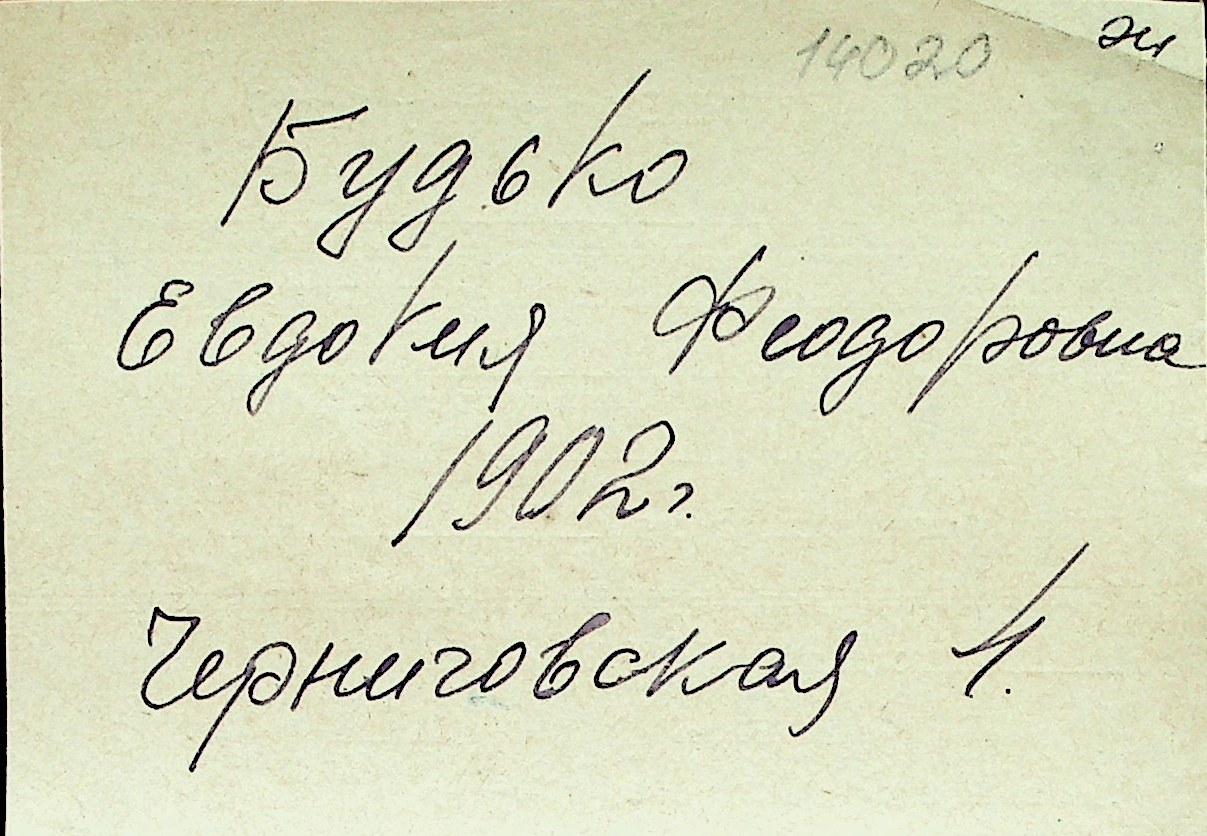 14020
Будько
Евдокия Феодоровна
1902 г.
Черниговская 4.